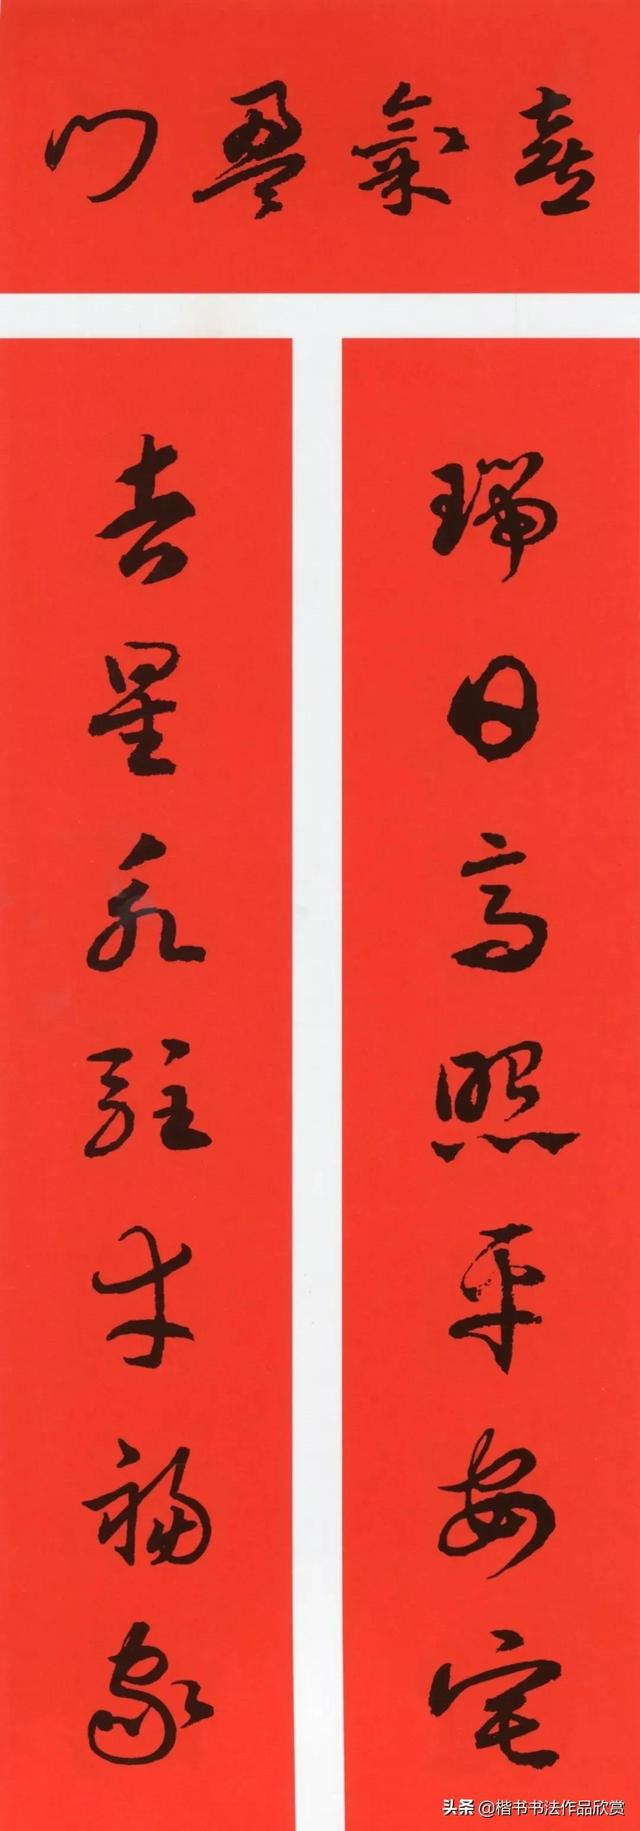 喜氣盈門
瑞日高照平安宅
吉星永駐幸福家
头条 @楷书书法作品欣赏